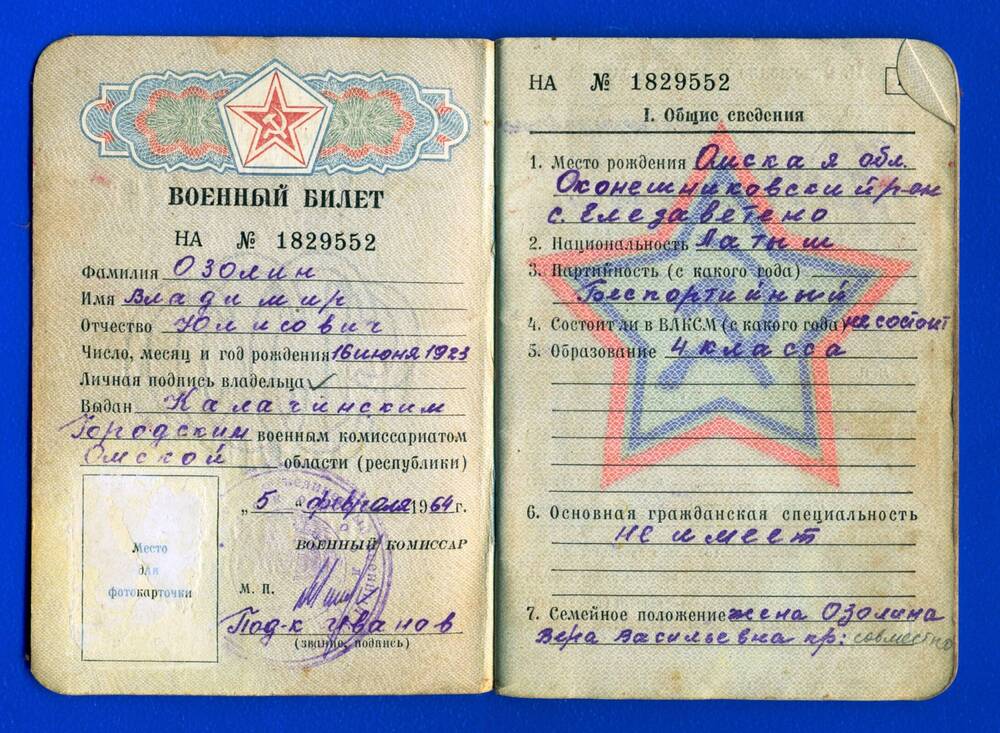 ВОЕННЫЙ БИЛЕТ
НА № 1829552
Фамилия Озолин
Имя Владимир
Отчество Юлисович
Число, месяц и год рождения 16 июня 1923
Личная подпись владельца
Выдан Калачинским
Городским военным комиссариатом
Омской области (республики)
„5 " февраля 1964 г.
ВОЕННЫЙ КОМИССАР
Место
для
фотокарточки
М. П.
Под-к Иванов
(звание, подпись)
НА № 1829552
I. Общие сведения
1. Место рождения Омская обл.
Оконешниковский р-он
с. Елезаветено
2. Национальность Латыш
3. Партийность (с какого года)
Беспортийный
4. Состоит ли в ВЛКСМ (с какого года) не состоит
5. Образование 4 класса
6. Основная гражданская специальность
не имеет
7. Семейное положение жена Озолина
Вера Васильевна пр: совместно